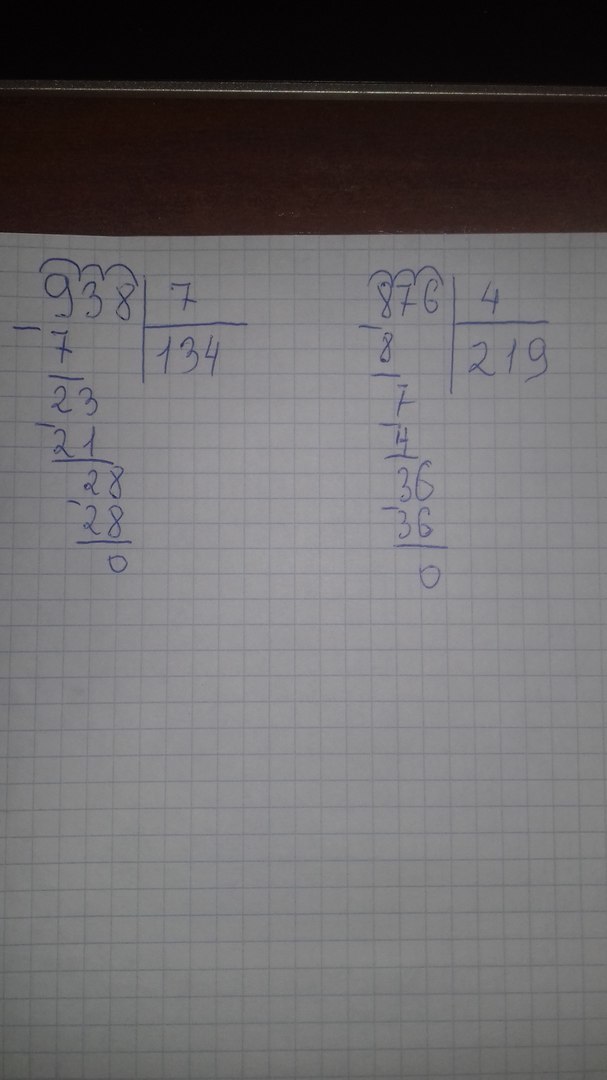 938 7
- 7 134
23
- 21
28
- 28
0
876 4
- 8 219
7
- 4
36
- 36
0